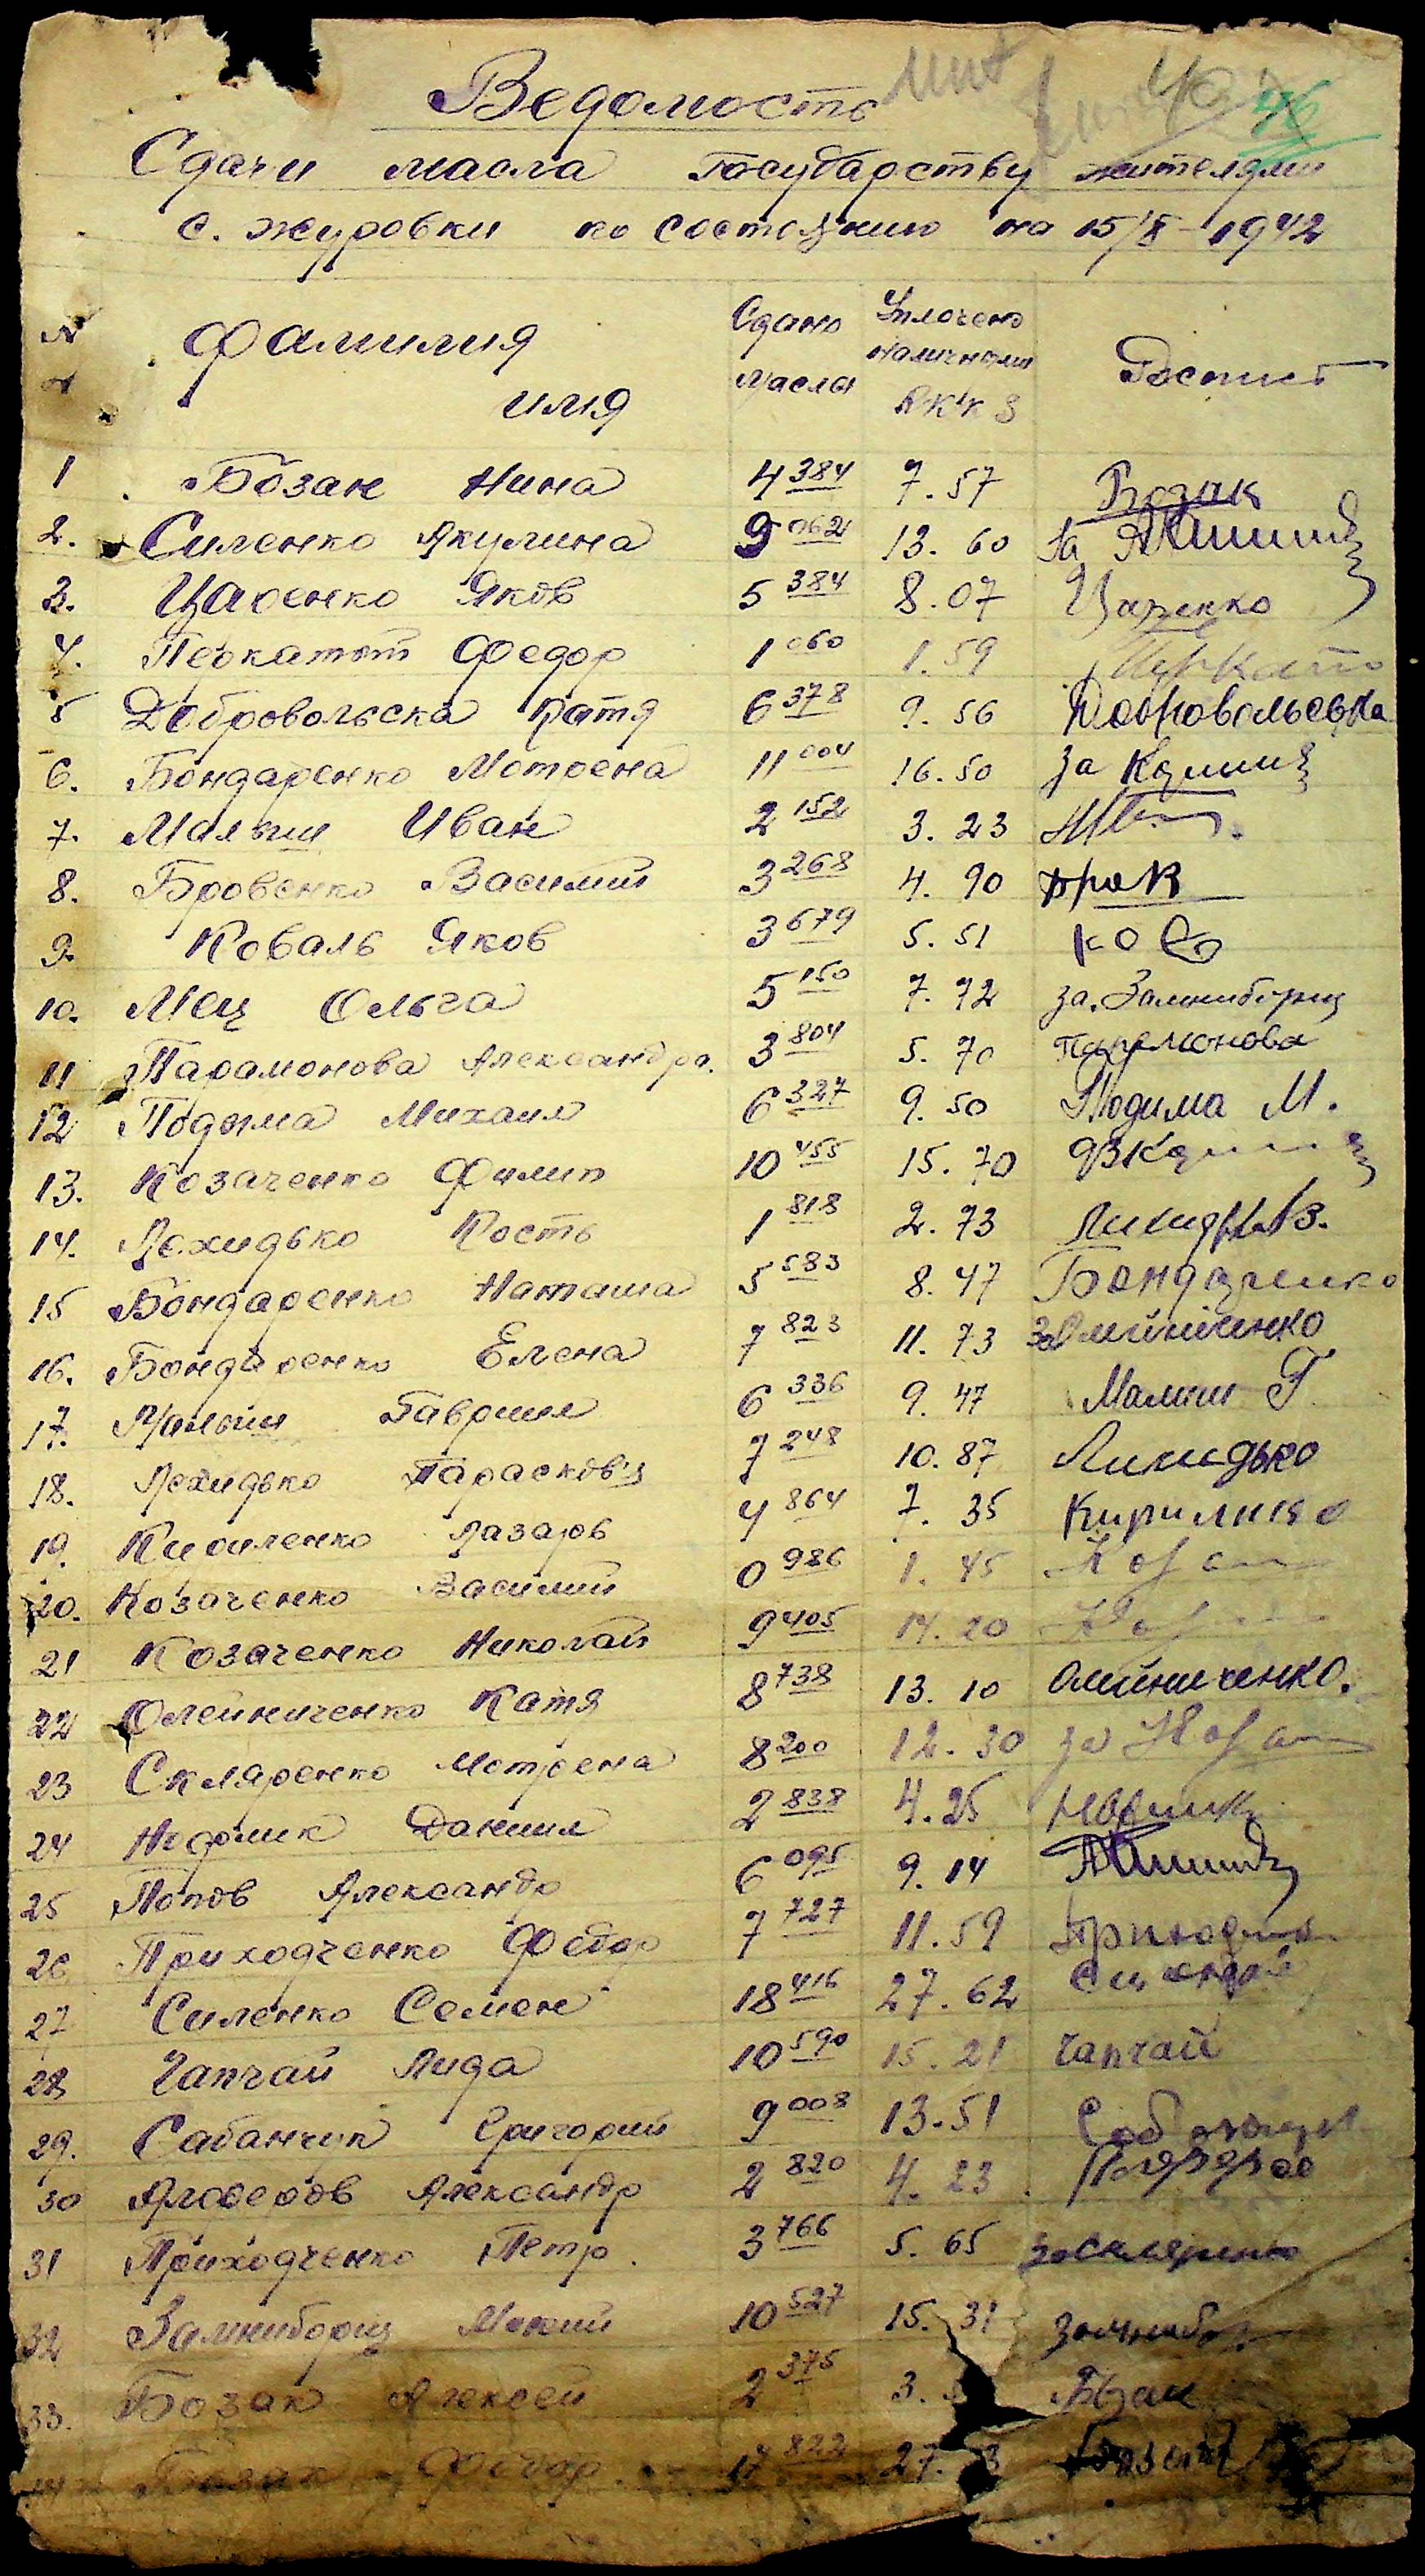 Ведомость
46
Сдачи масла государству жителями
с. Журовки по состоянию на 15/8-1942
N Фамилия имя Сдано масла Уплочено наличными Роспись
1 Бозак Нина 4 384 7.57 Бозак
2. Силенко Якулина 9 062 13.60 За
3. Царенко Яков 5 384 8.07 Царенко
4. Перкатый Федор 1 060 1.59
5 Добровольска Катя 6 378 9.56 Добровольська
6. Бондаренко Мотрена 11 004 16.50 за
7. Малыш Иван 2 152 3.23
8. Бровенко Василий 3 268 4.90
9. Коваль Яков 3 679 5.51 Ков
10. Мец Ольга 5 150 7.72 за. Замниборщ
11 Парамонова Александра. 3 804 5.70 Парамонова
12 Подыма Михаил 6 327 9.50 Подима М.
13. Козаченко Филип 10 455 15.70
14. Лехидько Кость 1 818 2.73
15 Бондаренко Наташа 5 583 8.47 Бондаренко
16. Бондаренко Елена 7 823 11.73 За Олийниченко
17. Малыш Гаврил 6 336 9.47 Малиш Г
18. Лехидько Парасков'я 7 248 10.87 Лихидько
19. Кириленко Лазарь 4 864 7.35
20. Козаченко Василий 0 986 1.45
21 Козаченко Николай 9 405 14.20
22 Олейниченко Катя 8 738 13.10 Олийниченко.
23 Скляренко Мотрена 8 200 12.30 за
24 Недолик Данил 2 838 4.25
25 Попов Александр 6 095 9.14
26 Приходченко Федор 7 727 11.59
27 Силенко Семен 18 416 27.62
28 Чапчай Лида 10 590 15.21 Чапчай
29. Сабанчук Григорий 9 008 13.51
30 Александр 2 820 4.23
31 Приходченко Петр. 3 766 5.65
32 Замниборщ Мокий 10 527 15.31
33. Бозак Алексей 2 375 3.
Бозак Федор. 822 27.